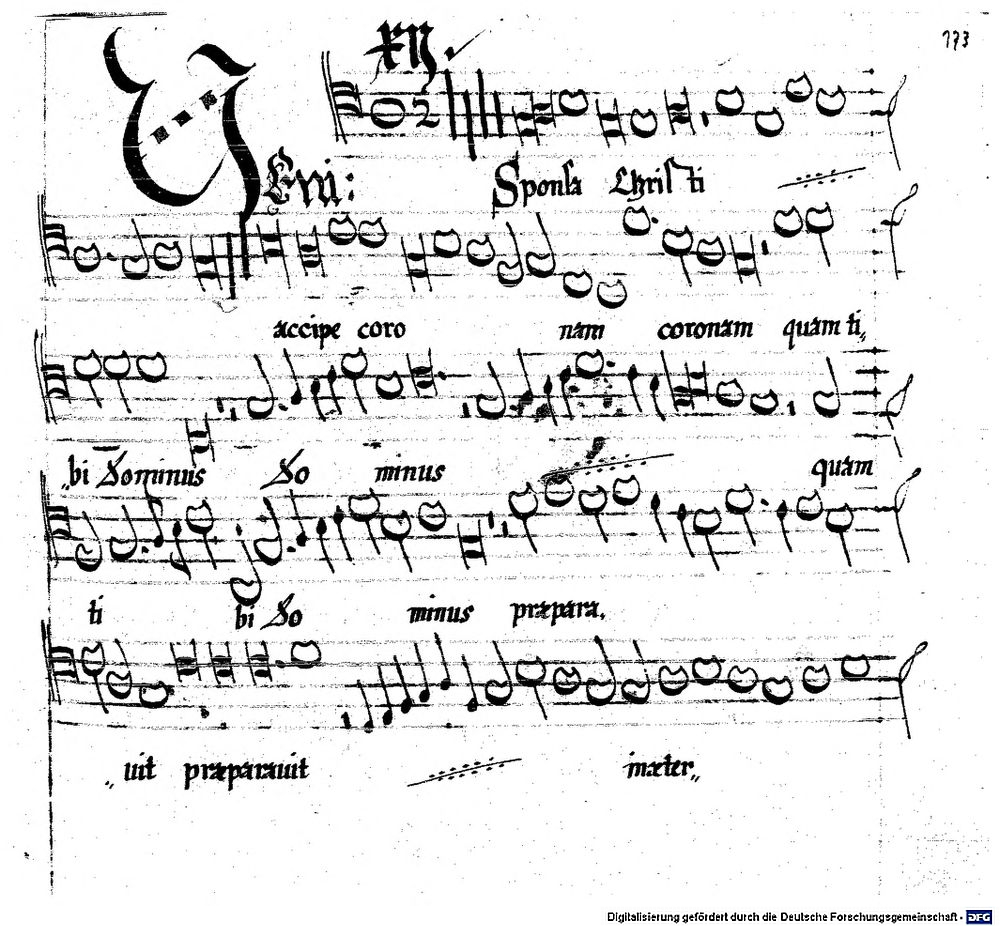 173
XII.
VEni: Sponsa Christi
accipe coro nam coronam quam ti„
„bi Dominus Do minus quam
ti bi Do minus præpara,
„uit præparauit inæter„
Digitalisierung gefördert durch die Deutsche Forschungsgemeinschaft - DFG